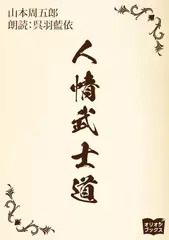 山本周五郎
朗読：呉羽藍依
人情武士道
オリオン
ブックス